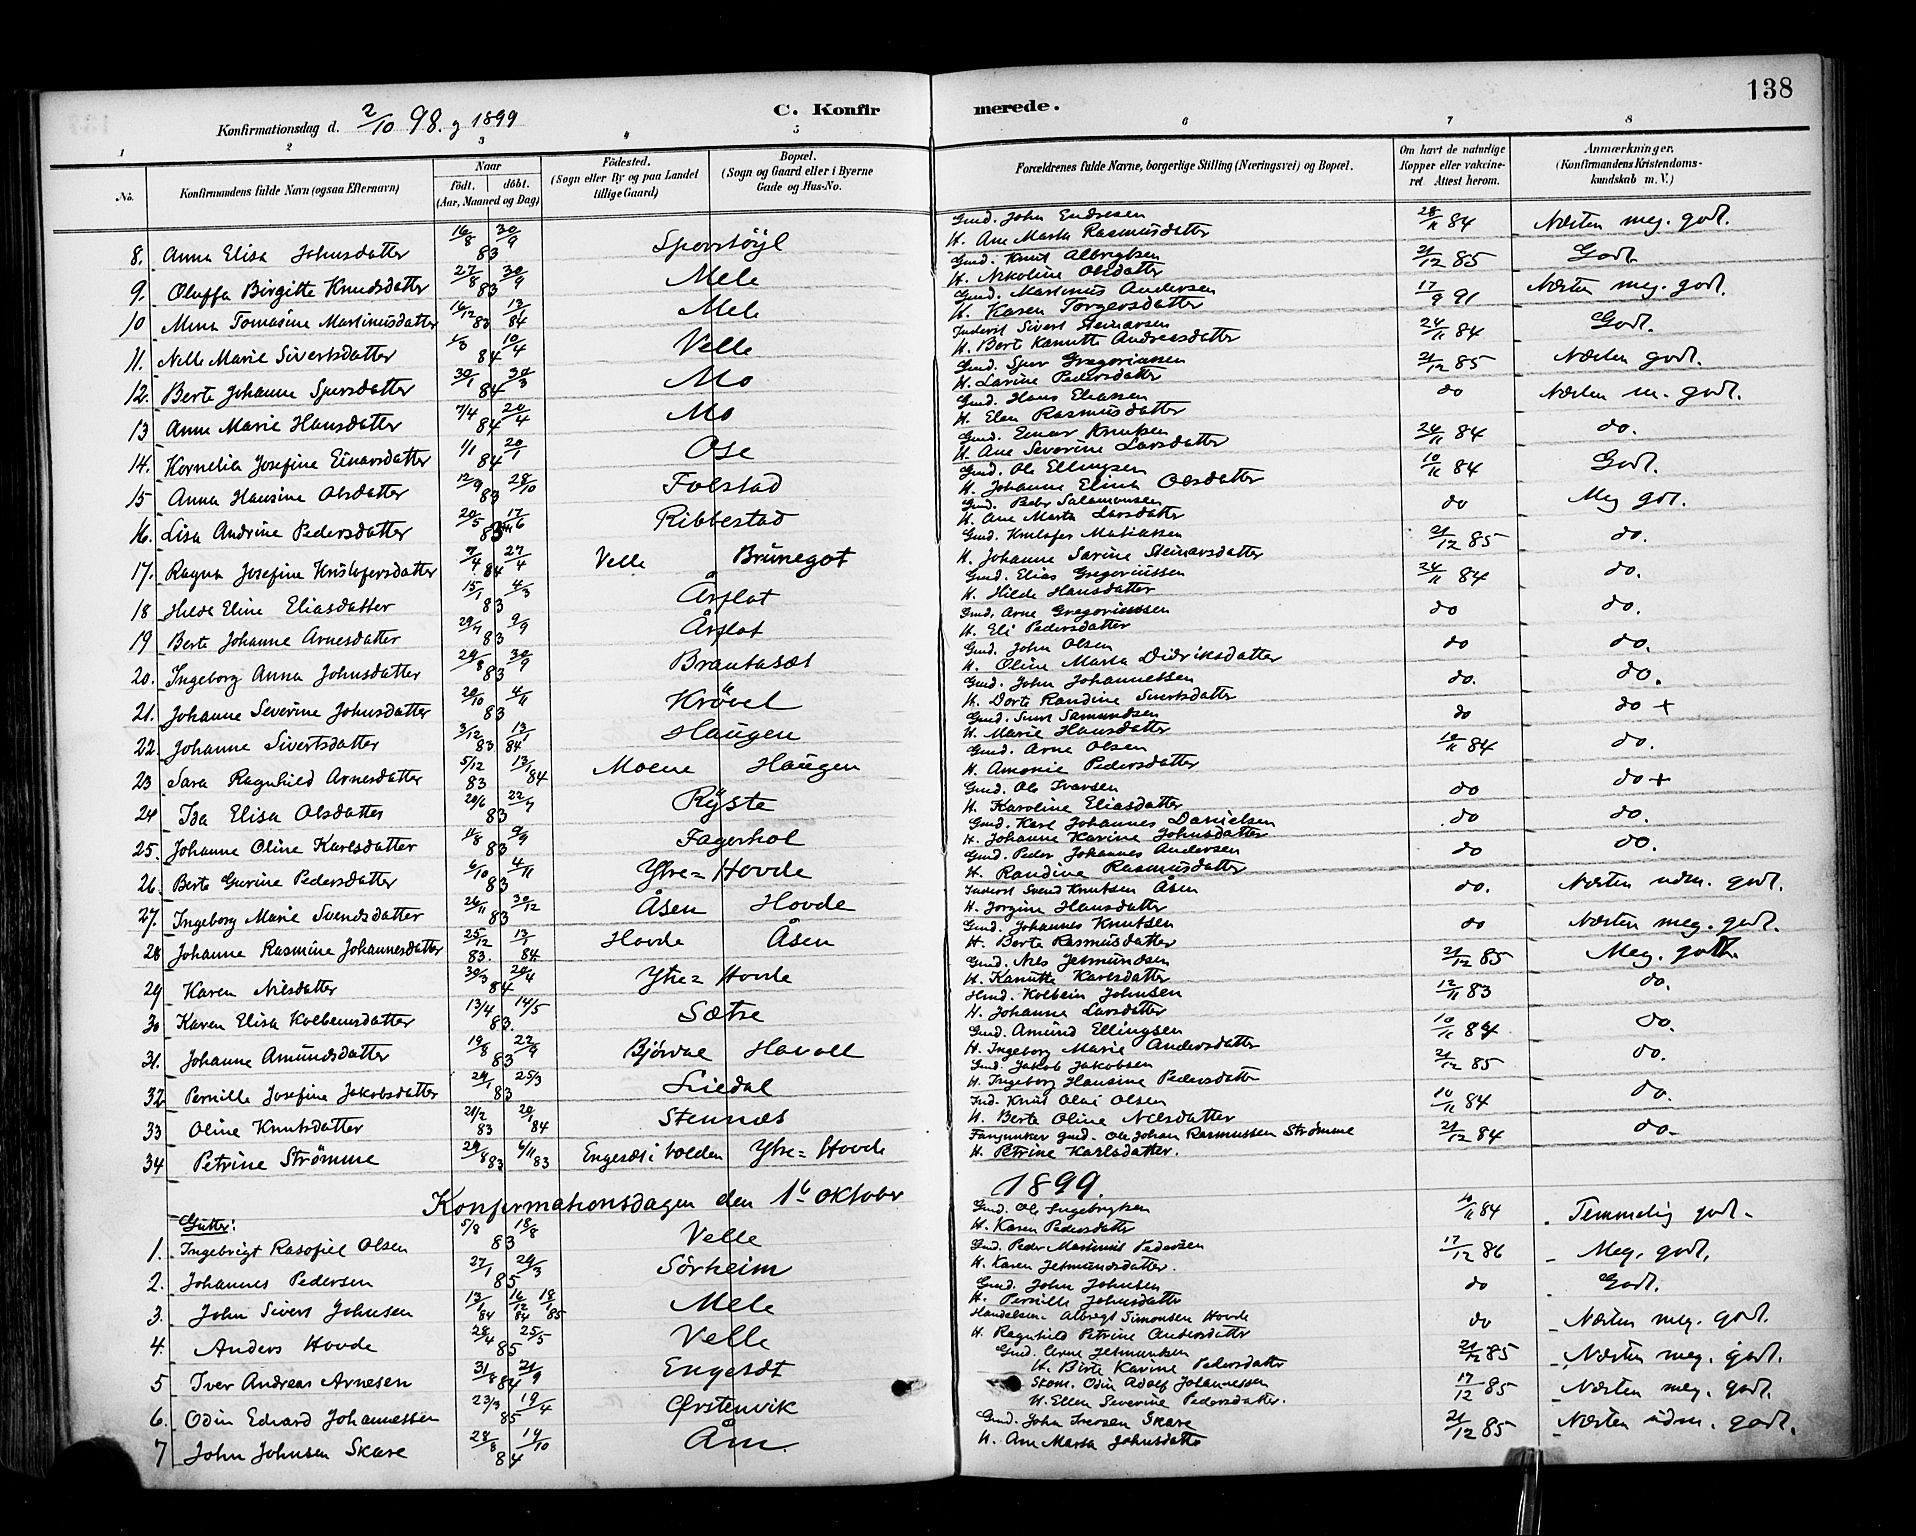 138
Konfirmationsdag d. 2/10 98. og 1899
C. Konfirmerede.
1 2 3 4 5 6 7 8
No.
Konfirmandens fulde Navn (ogsaa Efternavn)
Naar
født. døbt.
(Aar, Maaned og Dag)
Fødested.
(Sogn eller By og paa Landet
tillige Gaard)
Bopæl.
(Sogn og Gaard eller i Byerne
Gade og Hus-No.
Forældrenes fulde Navne, borgerlige Stilling (Næringsvei) og Bopæl.
Om havt de naturlige
Kopper eller vakcine-
ret. Attest herom.
Anmærkninger.
(Konfirmandens Kristendoms-
kundskab m. V.)
8. Anna Elisa Johnsdatter 16/8 30/9 83 Sporstøyl Gmd. John Endresen H. Ane Marta Rasmusdatter 28/11 84 Næsten meg. godt.
9. Oluffa Birgitte Knudsdatter 27/8 30/9 83 Mele Gmd. Knut Albrigtsen H. Nikoline Olsdatter 21/12 85 Godt.
10 Mina Tomasine Martinusdatter 16/12 83 13/1 84 Mele Gmd. Martinus Andersen H. Karen Torgersdatter 17/9 91 Næsten meg. godt.
11. Nelle Marie Sivertsdatter 1/3 10/4 84 Velle Inderst Sivert Steinarsen H. Bert Kanutte Andreasdatter 24/11 84 Godt.
12. Berte Johanne Spersdatter 30/1 30/3 84 Mo Gmd. Sper Gregoriussen H. Larine Pedersdatter 21/12 85 Næsten godt.
13 Anne Marie Hansdatter 7/4 20/4 84 Mo Gmd. Hans Eliassen H. Elen Rasmusdatter do Næsten m. godt.
14. Kornelia Josefine Einarsdatter 1/1 20/1 84 Ose Gmd. Einar Knutsen H. Ane Severine Larsdatter 24/11 84 do.
15 Anna Hansine Olsdatter 12/9 28/10 83 Folstad Gmd. Ole Ellingsen H. Johanne Elina Olsdatter 10/11 84 Godt.
16. Lisa Andrine Pedersdatter 20/5 17/6 83 Ribbestad Gmd. Peder Salamonsen H. Ane Marta Larsdatter do Meg got.
17. Ragna Josefine Kristofersdatter 7/4 27/4 84 Velle Brunegot Gmd. Kristofer Matiassen H. Johanne Sarine Steinarsdatter 21/12 85 do.
18 Hilde Eline Eliasdatter 15/1 4/3 83 Årflot Gmd. Elias Gregoriussen H. Hilde Hansdatter 24/11 84 do.
19 Berte Johanne Arnesdatter 29/7 9/9 83 Årflot Gmd. Arne Gregoriussen H. Eli Pedersdatter do do.
20. Ingeborg Anna Johnsdatter 29/8 30/9 83 Brautasæt Gmd. John Olsen H. Oline Marta Didriksdatter do do.
21. Johanne Severine Johnsdatter 20/10 4/11 83 Krövel Gmd. John Johannessen H. Dorte Randine Sivertsdatter do. do.
22. Johanne Sivertsdatter 3/12 83 13/1 84 Haugen Gmd. Sivert Samundsen H. Marie Hansdatter do do +
23 Sara Ragnhild Arnesdatter 5/12 83 13/1 84 Moene Haugen Gmd. Arne Olsen H. Amonie Pedersdatter 10/11 84 do.
24 Ida Elisa Olsdatter 20/6 22/7 83 Ryste Gmd. Ole Ivarsen H. Karoline Eliasdatter do do +
25. Johanne Oline Karlsdatter 11/8 9/9 83 Fagerhol Gmd. Karl Johannes Danielsen H. Johanne Karine Johnsdatter do do.
26. Berte Gurine Pedersdatter 6/10 4/11 83 Ytre= Hovde Gmd. Peder Johannes Andersen H. Randine Rasmusdatter do do.
27. Ingeborg Marie Svendsdatter 26/11 30/12 83 Åsen Hovde Inderst Svend Knutsen Åsen H. Jorgine Hansdatter do. Næsten udm. godt.
28 Johanne Rasmine Johannesdatter 25/12 83. 13/1 84. Hovde Åsen Gmd. Johannes Knutsen H. Berte Rasmusdatter do Næsten meg. godt.
29 Karen Nilsdatter 30/3 20/4 84 Ytre= Hovde Gmd. Nils Jetmundsen H. Kanutte Karlsdatter 21/12 85 Meg. godt.
30 Karen Elisa Kolbeinsdatter 13/4 14/5 83. Sætre Hmd. Kolbein Johnsen H. Johanne Larsdatter 12/11 83 do.
31. Johanne Amundsdatter 19/8 22/9 83 Bjørdal Havoll Gmd. Amund Ellingsen H. Ingeborg Marie Andersdatter 10/11 84 do.
32 Pernille Josefine Jakobsdatter 24/1 25/3 83 Liedal Gmd. Jakob Jakobsen H. Ingeborg Hansine Pedersdatter 21/12 85 do.
33 Oline Knutsdatter 21/2 83 20/1 84 Stennæs Ind. Knut Olai Olsen H. Berte Oline Nilsdatter 10/11 84 do.
34 Petrine Strømme 29/8 83 6/11 83 Engesæt i Volden Ytre= Hovde Fanjunker gmd. Ole Johan Rasmussen Strømme H. Petrine Karlsdatter. 21/12 84 do.
Konfirmationsdagen den 1ste oktober 1899.
Gutter:
1. Ingebrigt Rasofiel Olsen 5/8 18/8 83 Velle Gmd. Ole Ingebrigtsen H. Karen Pedersdatter 10/11 84 Temmelig godt.
2. Johannes Pedersen 27/1 29/3 85 Sörheim Gmd. Peder Martinus Pedersen H. Karen Jetmundsdatter. 17/12 86 Meg. godt.
3. John Sivert Johnsen 13/1 84 16/12 84 18/1 85 Mele Gmd. John Johnsen H. Pernille Johnsdatter do Godt.
4. Anders Hovde 28/4 25/5 85 Velle Handelsm. Albregt Simonsen Hovde H. Ragnhild Petrine Andersdatter do Næsten meg. godt.
5 Iver Andreas Arnesen 31/8 21/9 84 Engesæt Gmd. Arne Jetmundsen H. Birte Karine Pedersdatter 21/12 85 Næsten meg. godt.
6. Odin Edvard Johannessen 23/3 19/4 85 Ørstenvik Skom. Odin Adolf Johannessen H. Ellen Severine Pedersdatter. 17/12 85 Næsten meg. godt.
7 John Johnsen Skare 28/8 19/10 84 Åm Gmd. John Iversen Skare H. Ane Marta Johnsdatter 21/12 85 Næsten udm. godt.